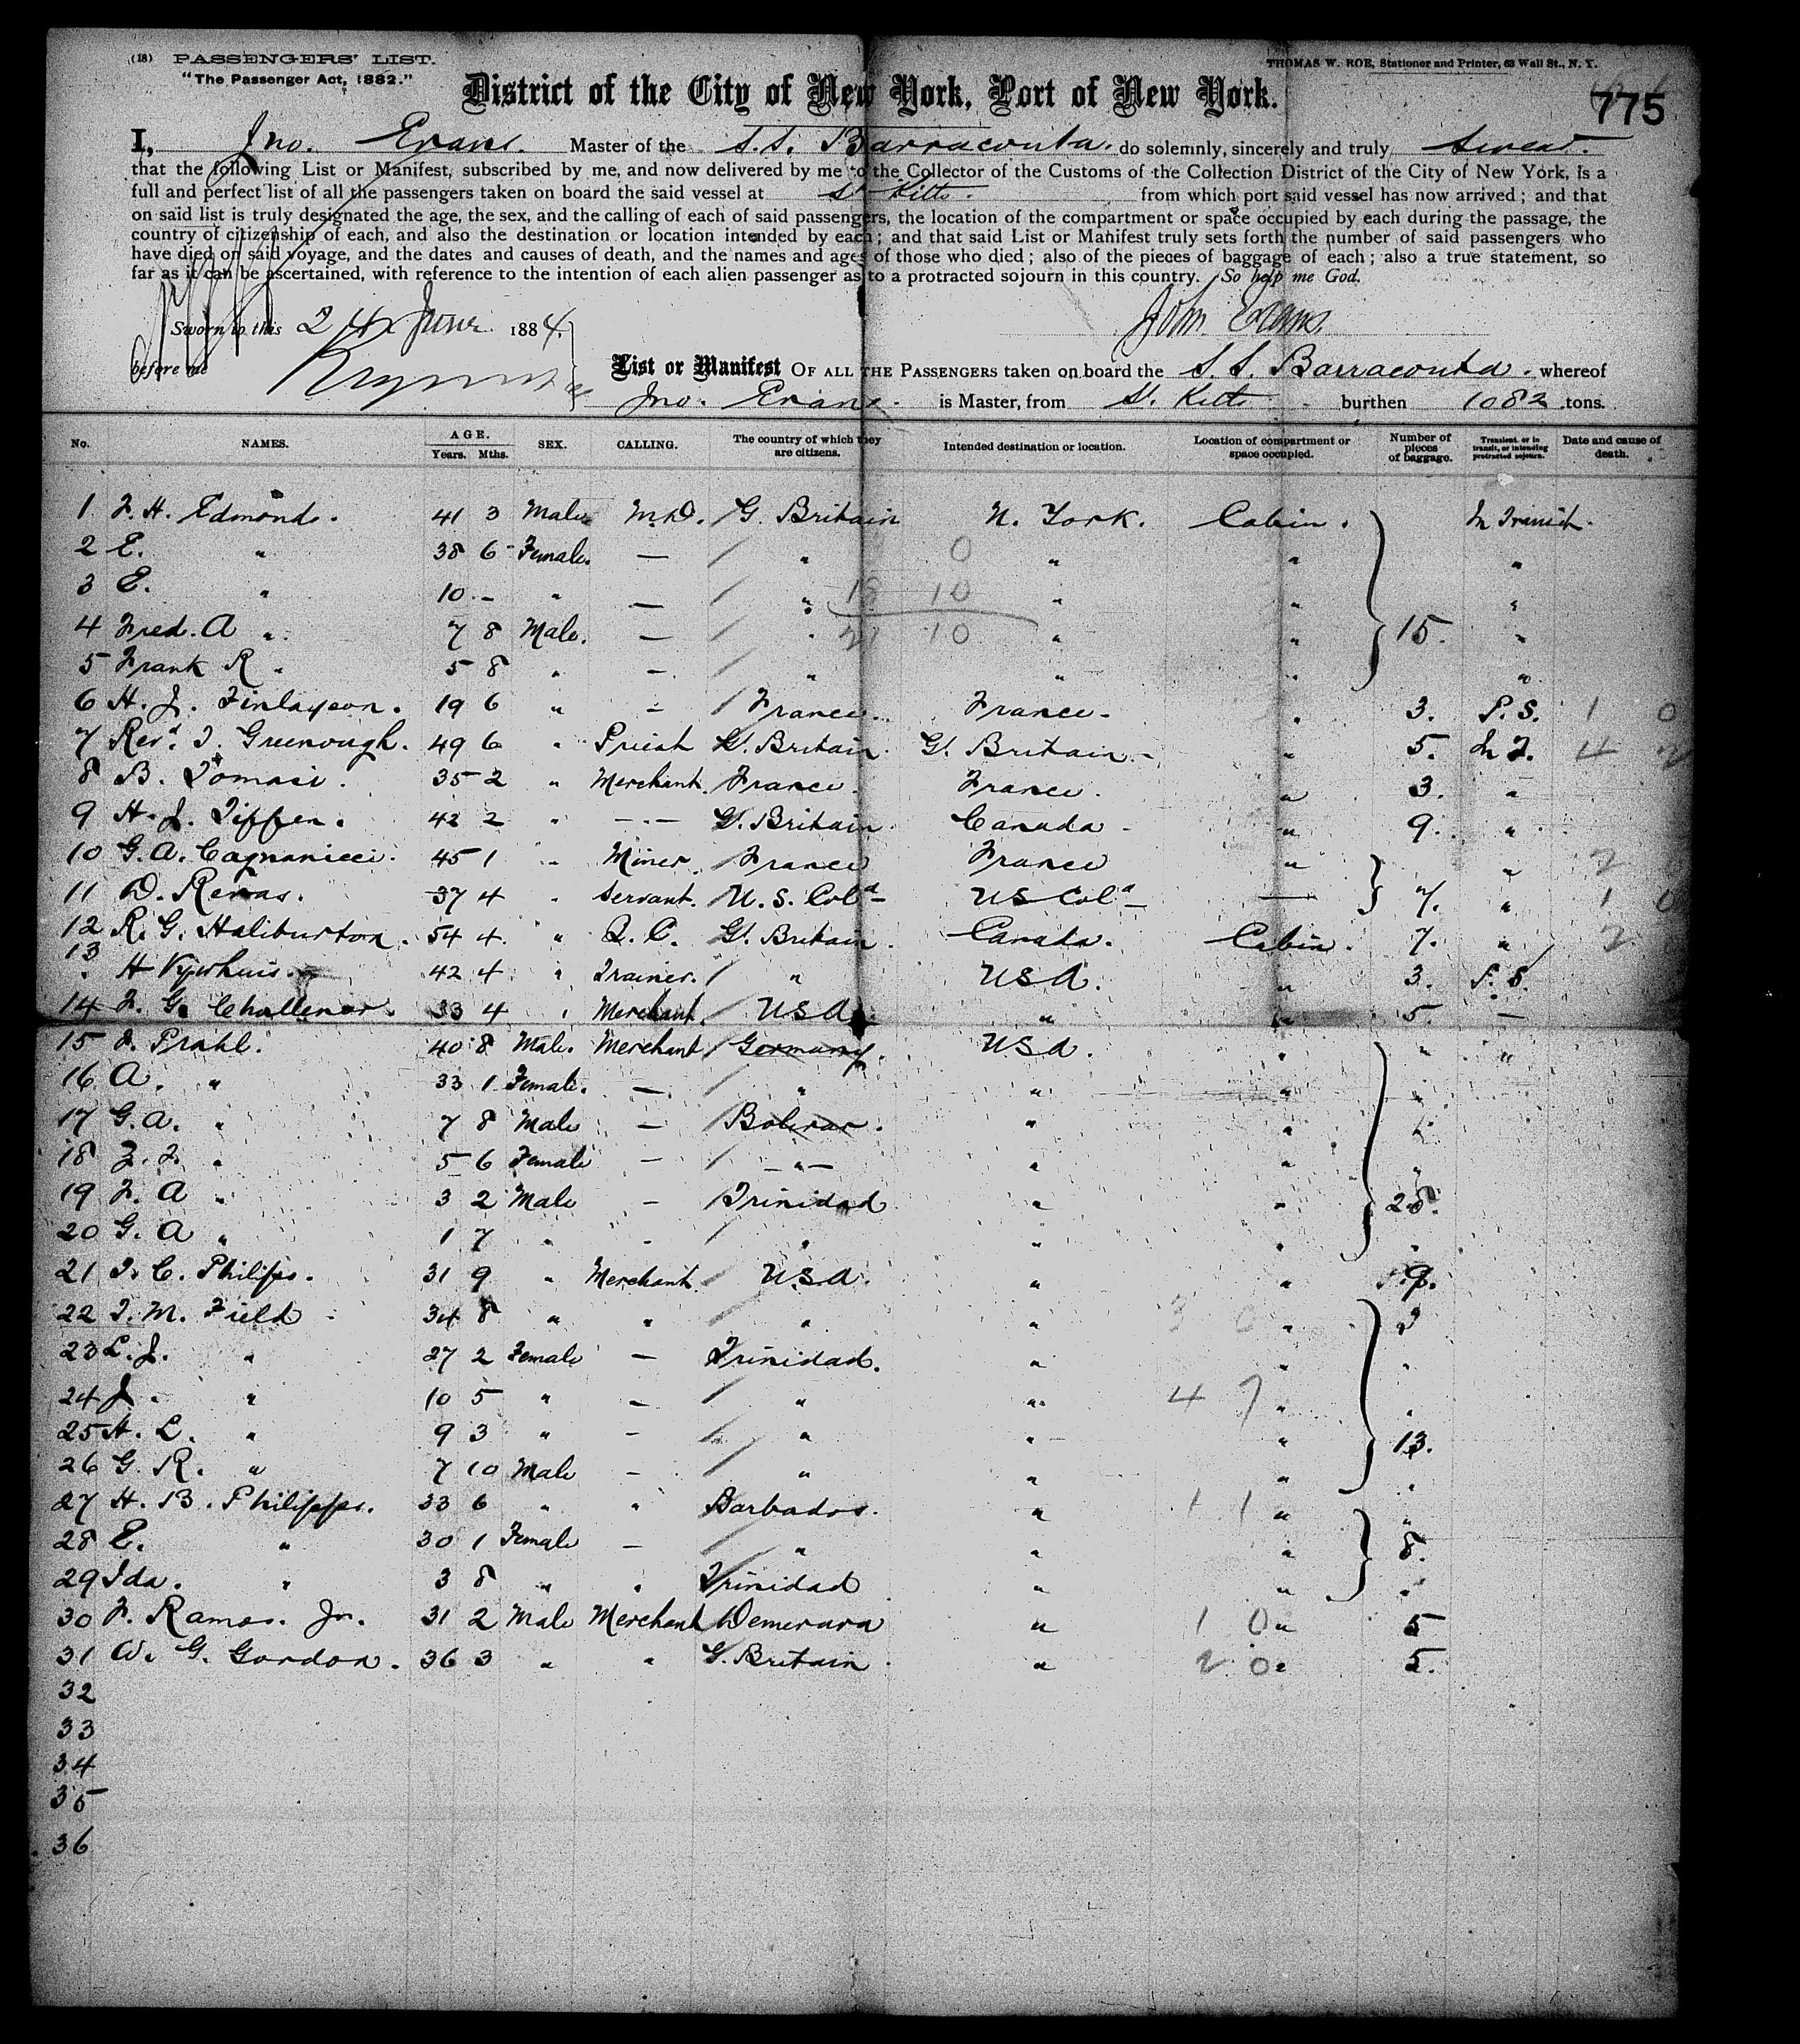 (18) PASSENGERS' LIST.
THOMAS W. ROE, Stationer and Printer, 63 Wall St., N. Y.
"The Passenger Act, 1882."
District of the City of New York, Port of New York.
775
I, Jno. Evans. Master of the S.S. Barracouta. do solemnly, sincerely and truly Swear.
that the following List or Manifest, subscribed by me, and now delivered by me to the Collector of the Customs of the Collection District of the City of New York, is a
full and perfect list of all the passengers taken on board the said vessel at St Kitts. from which port said vessel has now arrived; and that
on said list is truly designated the age, the sex, and the calling of each of said passengers, the location of the compartment or space occupied by each during the passage, the
country of citizenship of each, and also the destination or location intended by each; and that said List or Manifest truly sets forth the number of said passengers who
have died on said voyage, and the dates and causes of death, and the names and ages of those who died; also of the pieces of baggage of each; also a true statement, so
far as it can be ascertained, with reference to the intention of each alien passenger as to a protracted sojourn in this country. So help me God.
Sworn to this 24 June 1884.
John Evans
before me
List or Manifest OF ALL THE PASSENGERS taken on board the S. S. Barracouta. whereof
Jno. Evans. is Master, from St. Kitts burthen 1082 tons.
No. NAMES. AGE. Years. Mths. SEX. CALLING. The country of which they are citizens. Intended destination or location. Location of compartment or space occupied. Number of pieces of baggage. Transient, or in transit, or intending protracted sojourn. Date and cause of death.
1 F. H. Edmonds. 41 3 Male M.D. G. Britain N. York. Cabin. In Transit.
2 E. " 38 6 Female. — " 0 " " "
3 E. " 10 - " — " 18 10 " " "
4 Fred. A " 7 8 Male. — " 21 10 " " 15. "
5 Frank R " 5 8 " — " " " "
6 H. J. Finlayson. 19 6 " — France. France. " 3. P.S. 1 0
7 Revd. T. Greenough. 49 6 " Priest Gt. Britain. Gt. Britain. " 5. In T. 4 2
8 B. Tomasi. 35 2 " Merchant. France. France. " 3. "
9 H. J. Tiffen. 42 2 " —"— Gt. Britain. Canada " 9. "
10 G. A. 45 1 " Miner. France France " " 2
11 D. 37 4 " Servant. U. S. Cola US Cola — 7. " 1 0
12 R. G. Haliburton. 54 4 " Q. C. Gt. Britain. Canada. Cabin. 7. " 2
13 H 42 4 " Trainer. " USA. " 3. P.S.
14 F. G. Challenor. 33 4 " Merchant. USA " " 5. —
15 F. Prahl. 40 8 Male. Merchant Germany. USA. " " "
16 A. " 33 1 Female. — " " " "
17 G. A. " 7 8 Male — Bolivar. " " "
18 Z. F. " 5 6 Female — —"— " " "
19 F. A " 3 2 Male — Trinidad " " 28.
20 G. A " 1 7 " - " " " "
21 T. C. Philips. 31 9 " Merchant. U.S.A. " " 9.
22 T. M. Field 34 8 " " " " 3 0 " 2
23 L. J. " 27 2 Female — Trinidad. " " "
24 J. " 10 5 " — " " 4 7 " "
25 H. L. " 9 3 " — " " " 13.
26 G. R. " 7 10 Male — " " " "
27 H. B. Philipps. 33 6 " " Barbados. " 1 1 " "
28 E. " 30 1 Female — " " " 8.
29 Ida. " 3 8 " " Trinidad " " "
30 F. Ramos. Jr. 31 2 Male Merchant Demerara " 1 0 " 5
31 W. G. Gordon. 36 3 " " G. Britain " 2 0 " 5.
32
33
34
35
36